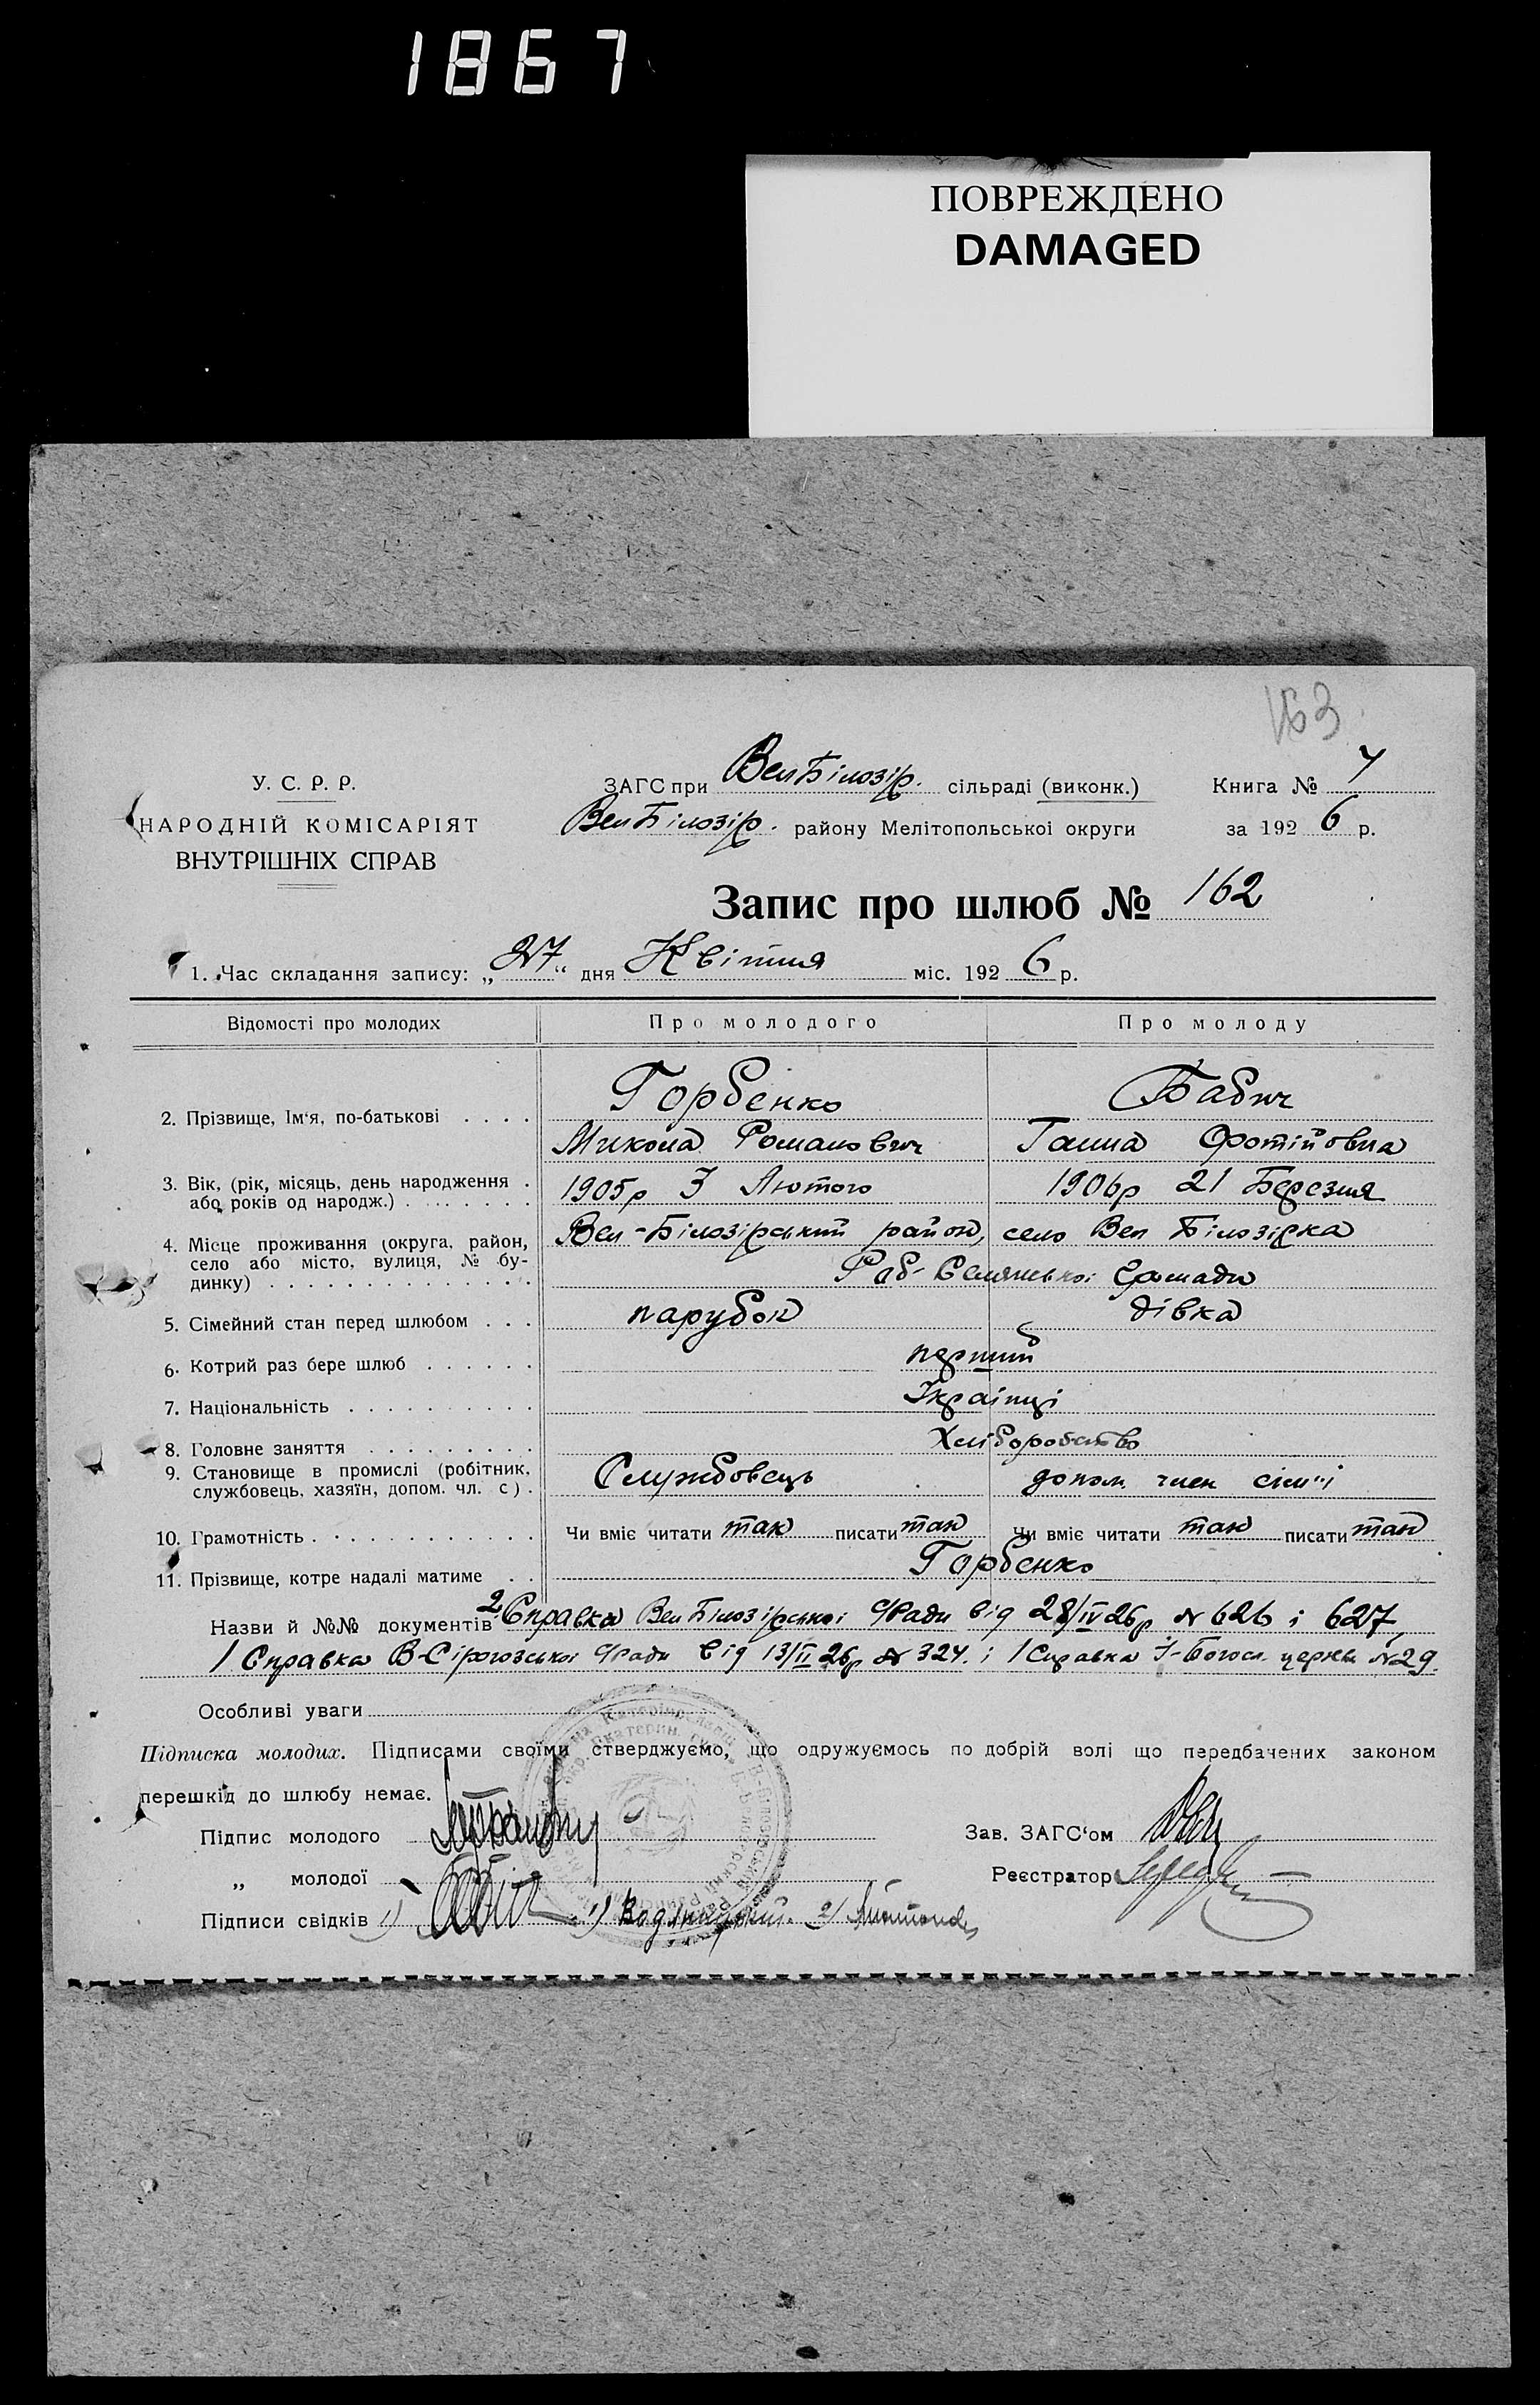 1867
ПОВРЕЖДЕНО
DAMAGED
163
У. С. Р. Р.
НАРОДНІЙ КОМІСАРІЯТ
ВНУТРІШНІХ СПРАВ
ЗАГС при Вел Білозір. сільраді (виконк.) Книга № 7
Вел Білозір. району Мелітопольської округи за 1926 р.
Запис про шлюб № 162
1. Час складання запису: „27“ дня Квітня міс. 1926 р.
Відомості про молодих Про молодого Про молоду
2. Прізвище, Ім'я, по-батькові . . . . Горбенко Бабич
Микола Романович Ганна Фотійовна
3. Вік, (рік, місяць, день народження . 1905р 3 Лютого 1906р 21 Березня
або років од народж.) . . . . . . .
4. Місце проживання (округа, район, Вел-Білозірський район, село Вел Білозірка
село або місто, вулиця, № бу-
динку) . . . . . . . . . . . . . . Громади
5. Сімейний стан перед шлюбом . . . парубок дівка
6. Котрий раз бере шлюб . . . . . . перший
7. Національність . . . . . . . . . . Українці
8. Головне заняття . . . . . . . . . Хліборобство
9. Становище в промислі (робітник, Службовець допом. член сім'ї
службовець, хазяїн, допом. чл. с) .
10. Грамотність . . . . . . . . . . . . Чи вміє читати так писати так Чи вміє читати так писати так
11. Прізвище, котре надалі матиме . . Горбенко
Назви й №№ документів 2 Справка Вел Білозірської с/Ради від 28/IV 26р № 626 і 627,
1 Справка В-Сірогозської с/Ради від 13/II 26р № 324. і 1 Справка І-Богосл. церкви №29.
Особливі уваги
Підписка молодих. Підписами своїми стверджуємо, що одружуємось по добрій волі що передбачених законом
перешкід до шлюбу немає.
Підпис молодого Зав. ЗАГС'ом
„ молодої Реєстратор
Підписи свідків 1) 1) 2)